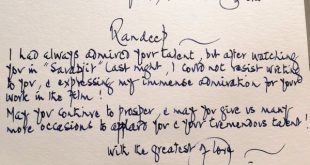 Randeep
I had always admired your talent, but after watching
you in "Sarabjit" last night, I could not resist writing
to you, & expressing my immense admiration for your
work in the film!
May you continue to prosper, & may you give us many
more occasions to applaud your & your tremendous talent!
With the greatest of love